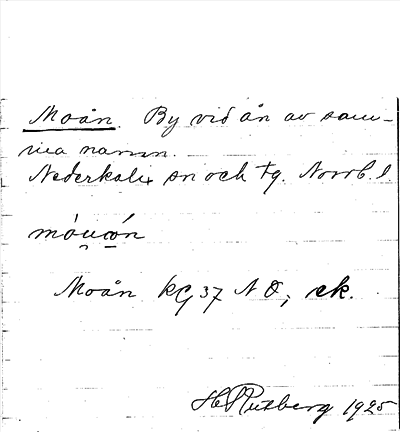 Moån. By vid ån av sam-
ma namn.
Nederkalix sn och tg. Norrb. l
Moån kg 37 N Ö, ek.
H Rutberg 1925